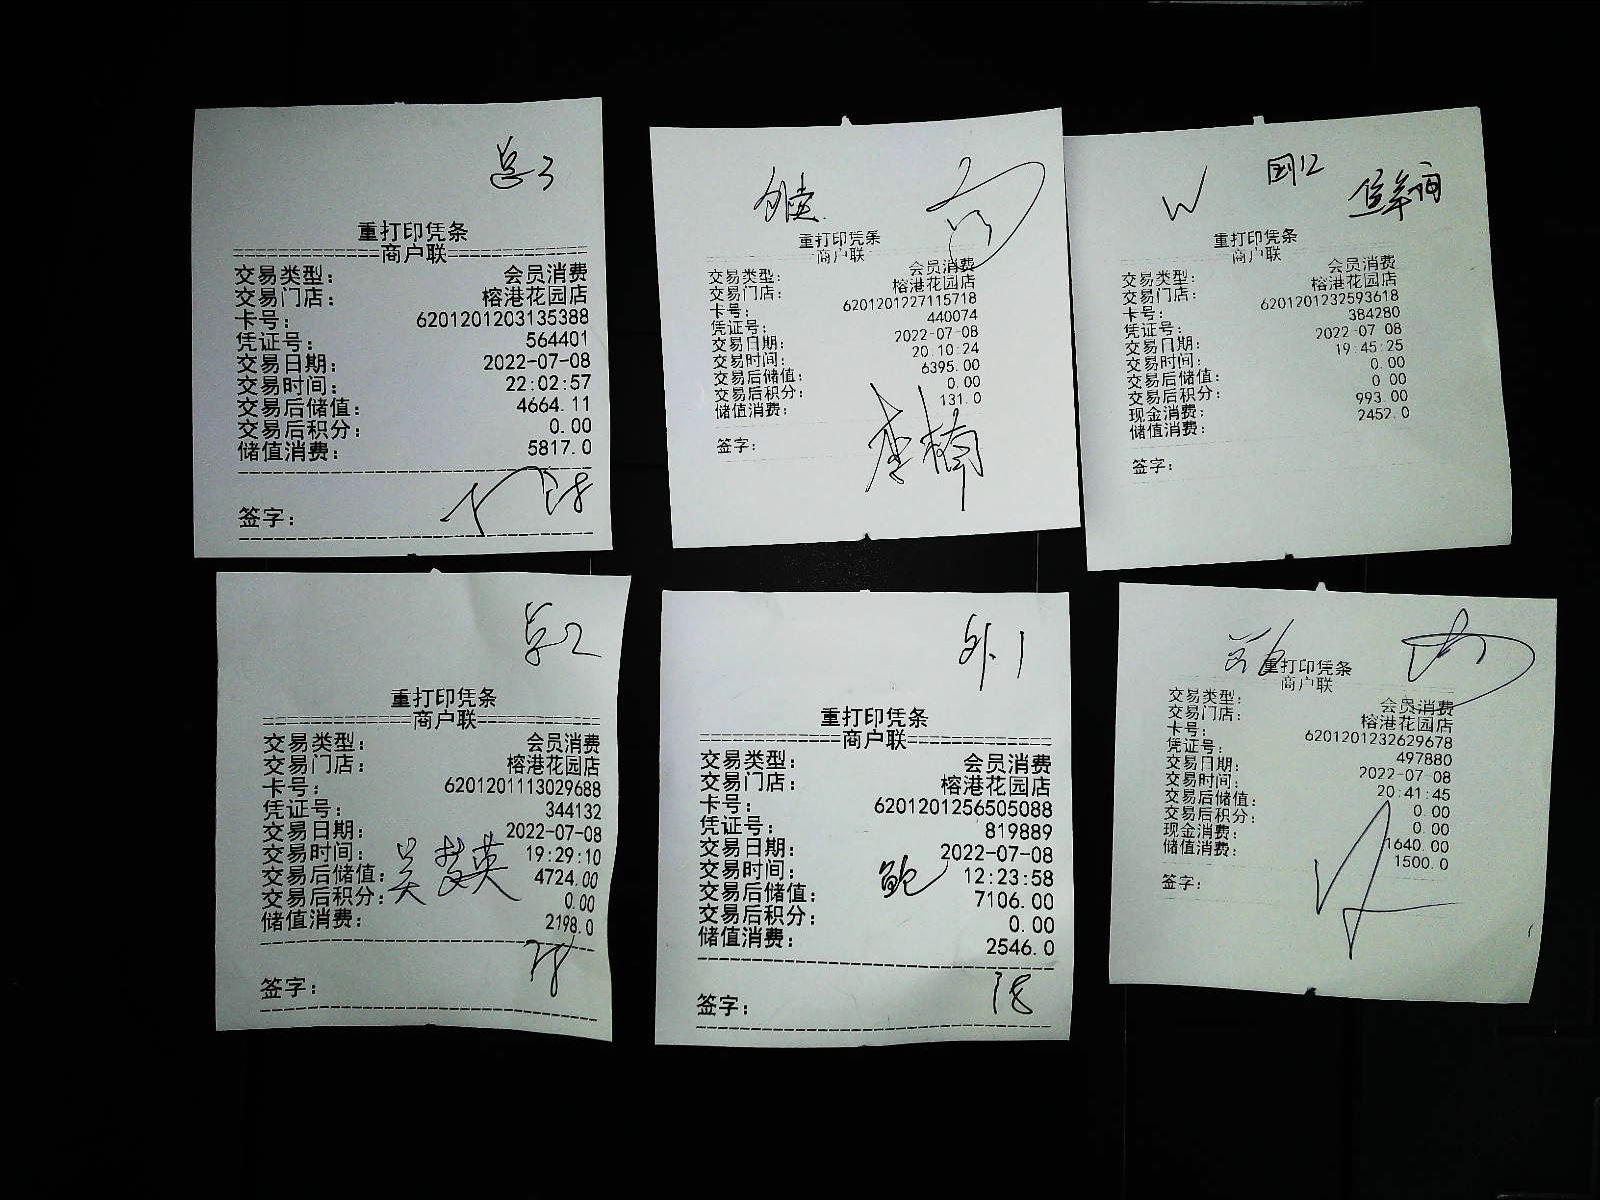 总3
重打印凭条
商户联
交易类型： 会员消费
交易门店： 榕港花园店
卡号： 6201201203135388
凭证号： 564401
交易日期： 2022-07-08
交易时间： 22:02:57
交易后储值： 4664.11
交易后积分： 0.00
储值消费： 5817.0
签字：
重打印凭条
商户联
交易类型： 会员消费
交易门店： 榕港花园店
卡号： 6201201227115718
凭证号： 440074
交易日期： 2022-07-08
交易时间： 20:10:24
交易后储值： 6395.00
交易后积分： 0.00
储值消费： 131.0
签字： 李楠
国12
重打印凭条
商户联
交易类型： 会员消费
交易门店： 榕港花园店
卡号： 6201201232593618
凭证号： 384280
交易日期： 2022-07-08
交易时间： 19:45:25
交易后储值： 0.00
交易后积分： 0.00
现金消费： 993.00
储值消费： 2452.0
签字：
总2
重打印凭条
商户联
交易类型： 会员消费
交易门店： 榕港花园店
卡号： 6201201113029688
凭证号： 344132
交易日期： 2022-07-08
交易时间： 19:29:10
交易后储值： 4724.00
交易后积分： 0.00
储值消费： 2198.0
签字：
外.1
重打印凭条
商户联
交易类型： 会员消费
交易门店： 榕港花园店
卡号： 6201201256505088
凭证号： 819889
交易日期： 2022-07-08
交易时间： 12:23:58
交易后储值： 7106.00
交易后积分： 0.00
储值消费： 2546.0
签字：
重打印凭条
商户联
交易类型： 会员消费
交易门店： 榕港花园店
卡号： 6201201232629678
凭证号： 497880
交易日期： 2022-07-08
交易时间： 20:41:45
交易后储值： 0.00
交易后积分： 0.00
现金消费： 1640.00
储值消费： 1500.0
签字：